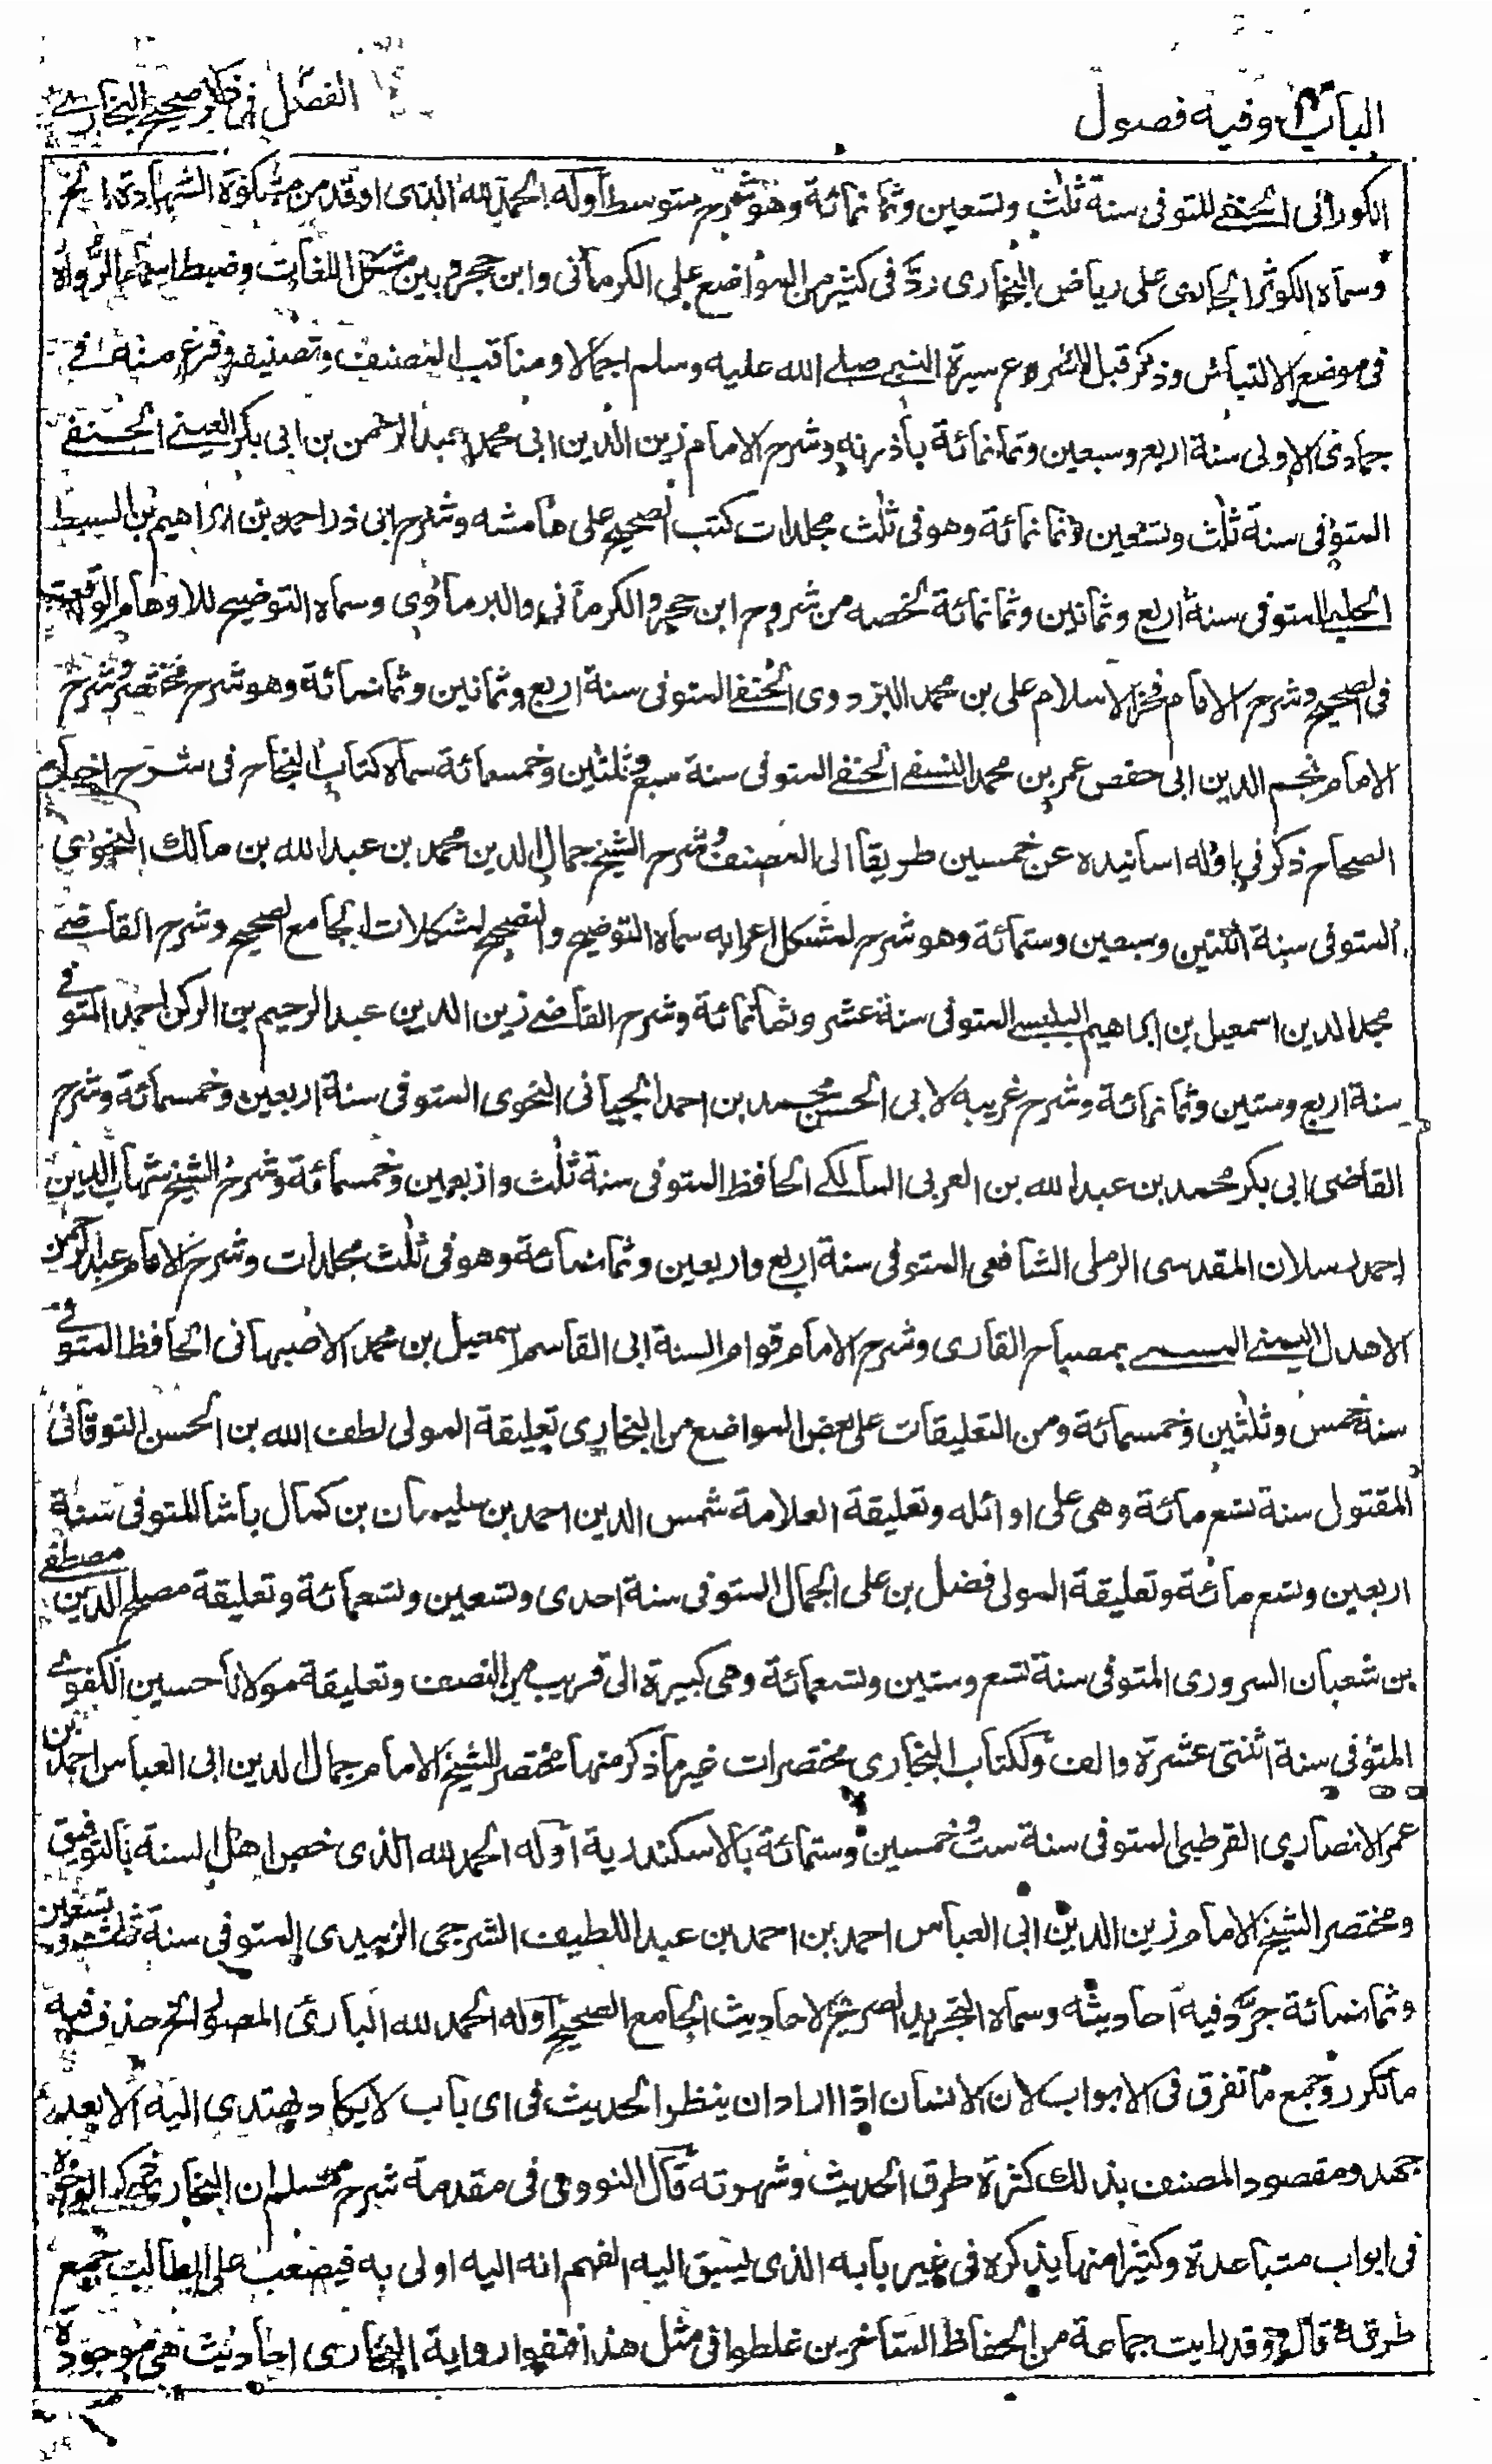 الباب وفيه فصول
الفصل في ذكر صحيح البخاري
الكوراني الحنفي المتوفى سنة ثلث وتسعين وثمانمائة وهو شرح متوسط اوله الحمد لله الذي اوقد من مشكوة الشهادة الخ
وسماه الكوثر الجاري على رياض البخاري ردّ في كثير من المواضع على الكرماني وابن حجر وبين مشكل اللغات وضبط اسماء الرواة
في موضع الالتباس وذكر قبل الشروع سيرة النبي صلى الله عليه وسلم اجمالا ومناقب المصنف وتصنيفه وفرغ منه في
جمادى الاولى سنة اربع وسبعين وثمانمائة بادرنه وشرح الامام زين الدين ابي محمد عبد الرحمن بن ابي بكر العيني الحنفي
المتوفى سنة ثلث وتسعين وثمانمائة وهو في ثلث مجلدات كتب الصحيح على هامشه وشرح ابي ذر احمد بن ابراهيم بن السبط
الحلبي المتوفى سنة اربع وثمانين وثمانمائة لخصه من شروح ابن حجر والكرماني والبرماوي وسماه التوضيح للاوهام الواقعة
في الصحيح وشرح الامام فخر الاسلام على بن محمد البزدوي الحنفي المتوفى سنة اربع وثمانين وثمانمائة وهو شرح مختصر وشرح
الامام نجم الدين ابي حفص عمر بن محمد النسفي الحنفي المتوفى سنة سبع وثلثين وخمسمائة سماه كتاب النجاح في شرح اخبار
الصحاح ذكر في اوله اسانيده عن خمسين طريقا الى المصنف وشرح الشيخ جمال الدين محمد بن عبد الله بن مالك النحوي
المتوفى سنة اثنتين وسبعين وستمائة وهو شرح لمشكل اعرابه سماه التوضيح والتصحيح لمشكلات الجامع الصحيح وشرح القاضي
مجد الدين اسمعيل بن ابراهيم البلبيسي المتوفى سنة عشر وثمانمائة وشرح القاضي زين الدين عبد الرحيم بن الركن احمد المتوفى
سنة اربع وستين وثمانمائة وشرح غريبه لابي الحسن محمد بن احمد الجياني النحوي المتوفى سنة اربعين وخمسمائة وشرح
القاضي ابي بكر محمد بن عبد الله بن العربي المالكي الحافظ المتوفى سنة ثلث واربعين وخمسمائة وشرح الشيخ شهاب الدين
احمد رسلان المقدسي الرملي الشافعي المتوفى سنة اربع واربعين وثمانمائة وهو في ثلث مجلدات وشرح الامام عبد الرحمن
الاهدل اليمني المسمى بمصباح القاري وشرح الامام قوام السنة ابي القاسم اسمعيل بن محمد الاصبهاني الحافظ المتوفى
سنة خمس وثلثين وخمسمائة ومن التعليقات على بعض المواضع من البخاري تعليقة المولى لطف الله بن الحسن التوقاني
المقتول سنة تسع مائة وهي على اوائله وتعليقة العلامة شمس الدين احمد بن سليمان بن كمال باشا المتوفى سنة
اربعين وتسع مائة وتعليقة المولى فضل بن على الجمالي المتوفى سنة احدى وتسعين وتسعمائة وتعليقة مصلح الدين مصطفى
بن شعبان السروري المتوفى سنة تسع وستين وتسعمائة وهي كبيرة الى قريب من النصف وتعليقة مولانا حسين الكفوي
المتوفى سنة اثنتي عشرة والف ولكتاب البخاري مختصرات غير ما ذكر منها مختصر الشيخ الامام جمال الدين ابي العباس احمد بن
عمر الانصاري القرطبي المتوفى سنة ست وخمسين وستمائة بالاسكندرية اوله الحمد لله الذي خص اهل السنة بالتوفيق
ومختصر الشيخ الامام زين الدين ابي العباس احمد بن احمد بن عبد اللطيف الشرجي الزبيدي المتوفى سنة ثلث وتسعين
وثمانمائة جرد فيه احاديثه وسماه التجريد الصريح لاحاديث الجامع الصحيح اوله الحمد لله البارئ المصور الخ حذف فيه
ما تكرر وجمع ما تفرق في الابواب لان الانسان اذا اراد ان ينظر الحديث في اي باب لا يكاد يهتدي اليه الا بعد
جهد ومقصود المصنف بذلك كثرة طرق الحديث وشهرته قال النووي في مقدمة شرح مسلم ان البخاري يذكر الوجوه
في ابواب متباعدة وكثيرا منها يذكره في غير بابه الذي يسبق اليه الفهم انه اليه اولى به فيصعب على الطالب جمع
طرقه قال وقد رايت جماعة من الحفاظ المتاخرين غلطوا في مثل هذا فنفوا رواية البخاري احاديث هي موجودة